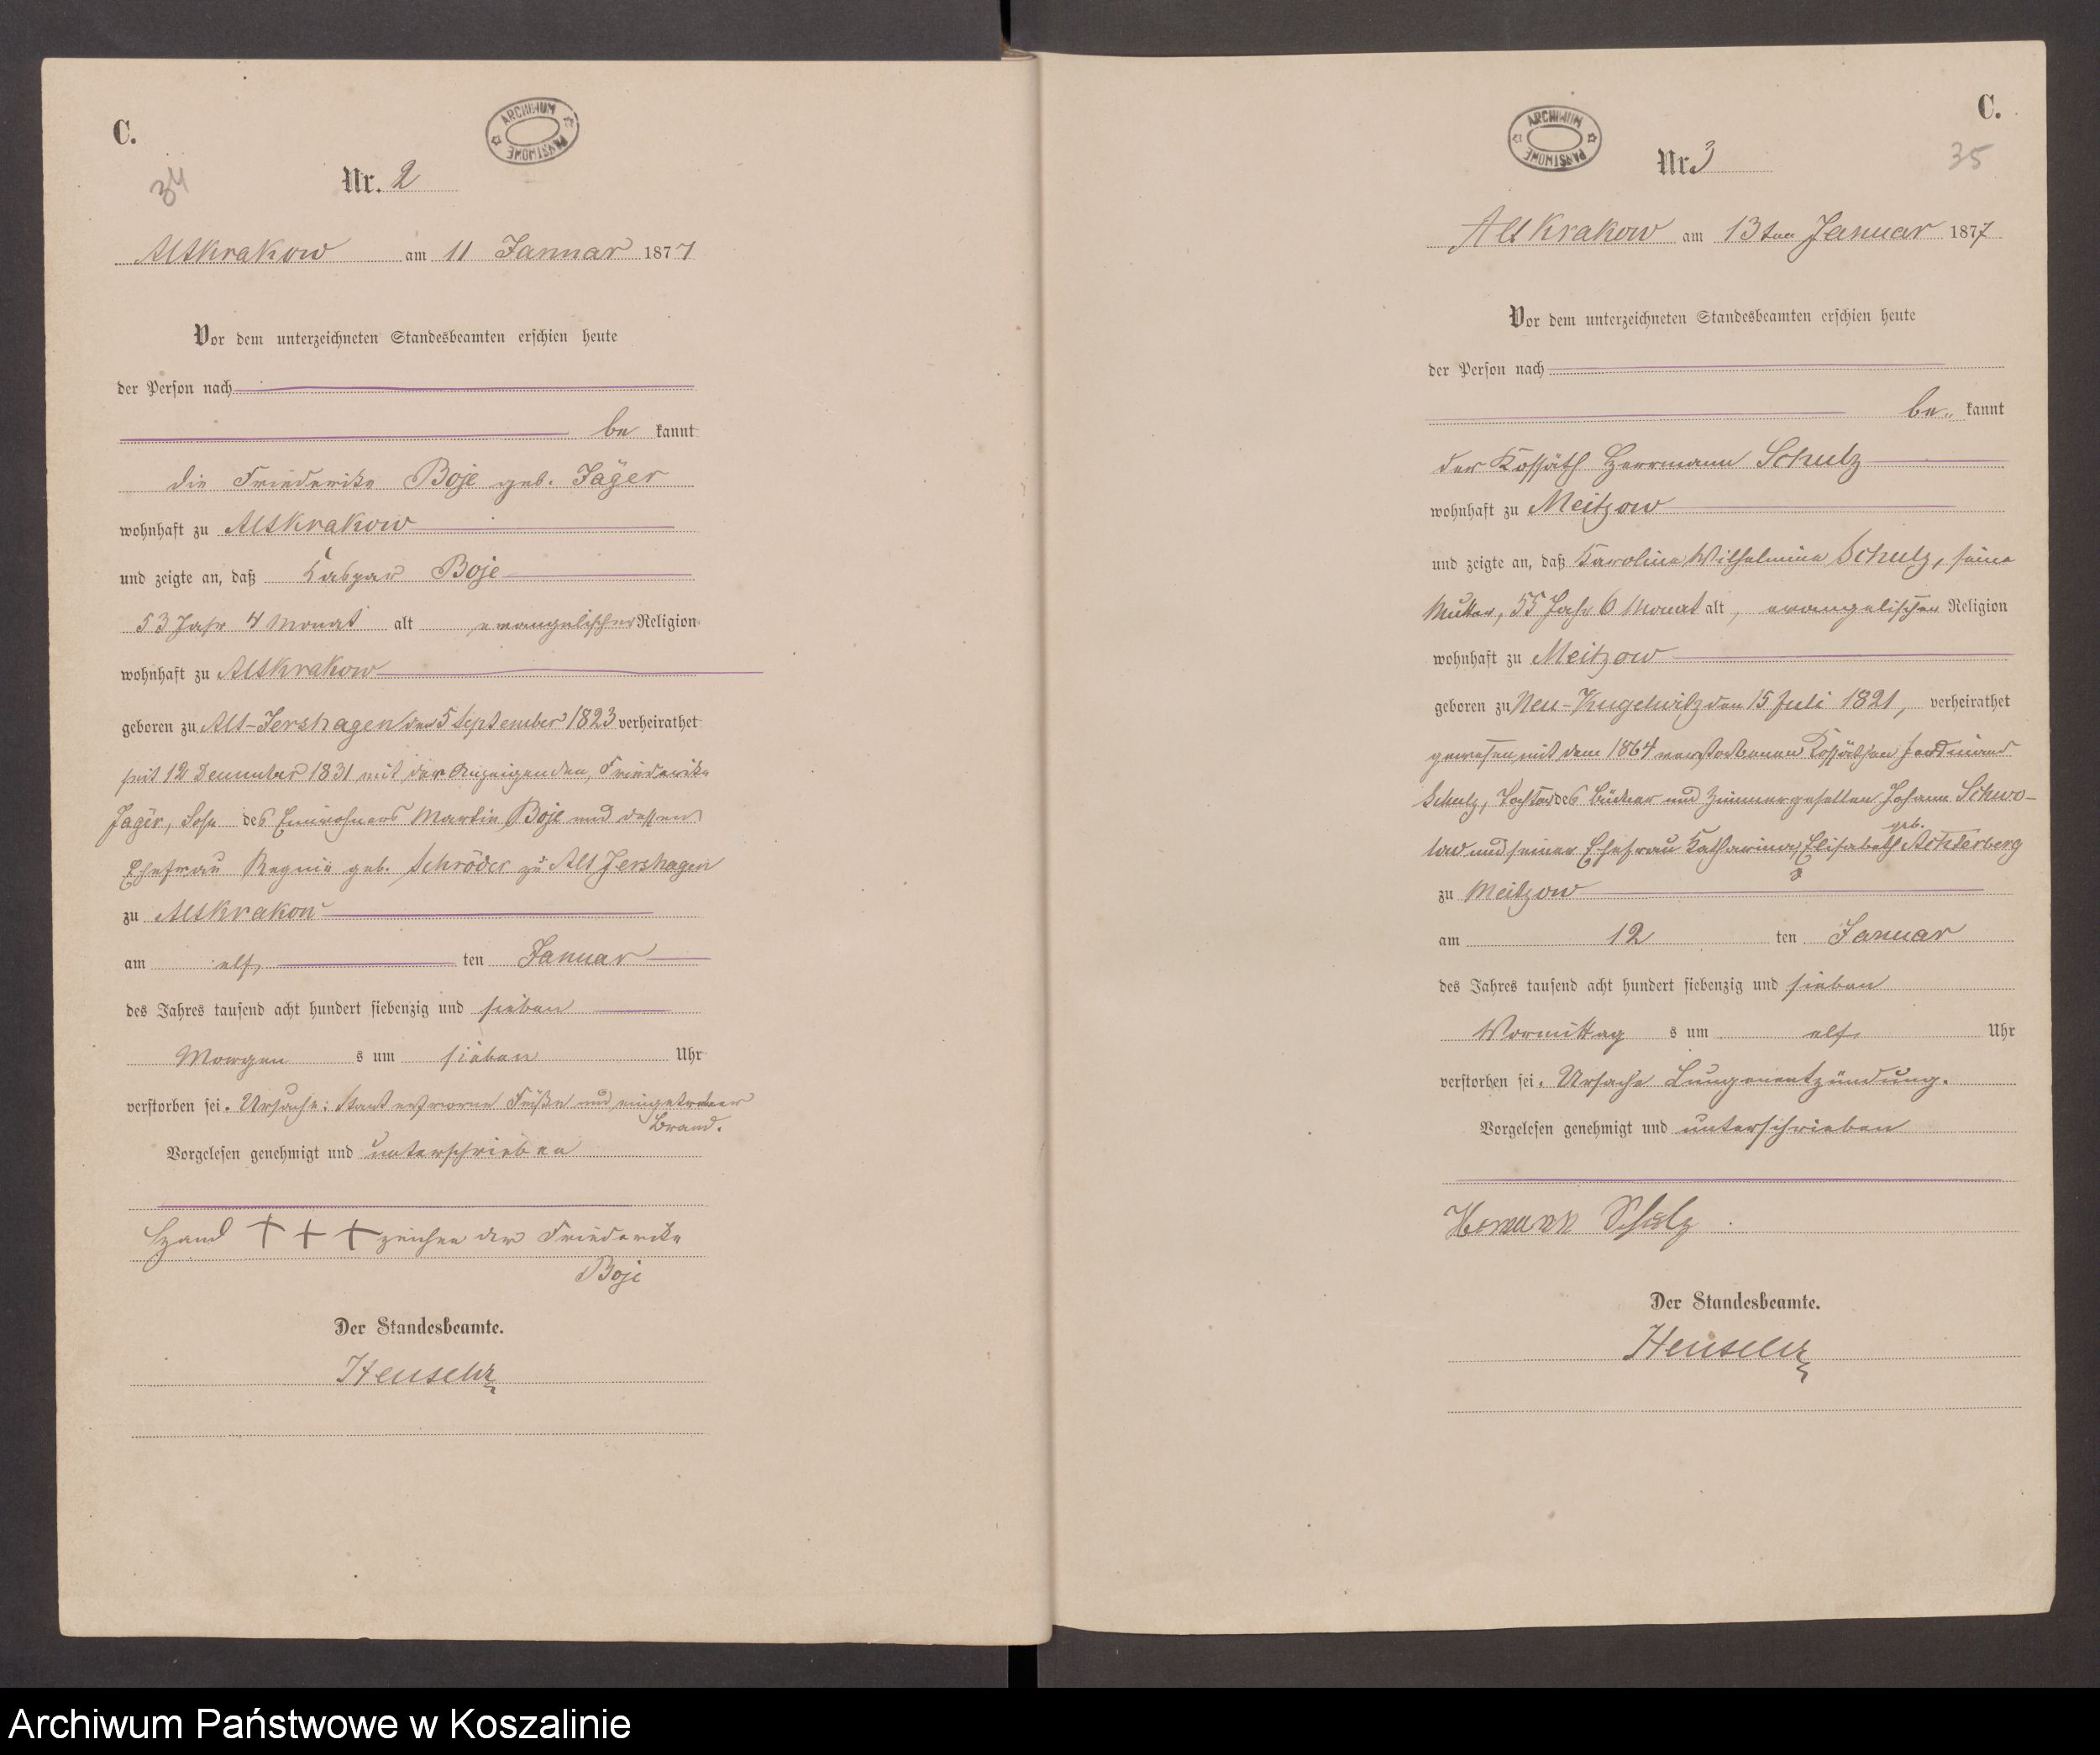 C.
34
ARCHIWUM PAŃSTWOWE
Nr. 2
Altkrakow am 11 Januar 1877
Vor dem unterzeichneten Standesbeamten erschien heute
der Person nach
be kannt
die Friederike Boje geb. Jäger
wohnhaft zu Altkrakow
und zeigte an, daß Caspar Boje
53 Jahr 4 Monat alt evangelischer Religion
wohnhaft zu Altkrakow
geboren zu Alt-Jershagen den 5 September 1823 verheirathet
seit 12 Dezember 1831 mit der Anzeigenden, Friederike
Jäger, Sohn des Einwohners Martin Boje und dessen
Ehefrau geb. Schröder zu Alt Jershagen
zu Altkrakow
am elf ten Januar
des Jahres tausend acht hundert siebenzig und sieben
Morgen s um sieben Uhr
verstorben sei. Ursache: erfrorne Füße und eingetretener
Brand.
Vorgelesen genehmigt und unterschrieben
Hand +++ zeichen der Friederike
Boje
Der Standesbeamte.
C.
35
ARCHIWUM PAŃSTWOWE
Nr. 3
Alt Krakow am 13ten Januar 1877
Vor dem unterzeichneten Standesbeamten erschien heute
der Person nach
be kannt
der Kossäth Herrmann Schulz
wohnhaft zu Meitzow
und zeigte an, daß Karoline Wilhelmine Schulz, seine
Mutter, 55 Jahr 6 Monat alt, evangelischer Religion
wohnhaft zu Meitzow
geboren zu Neu-Kugelwitz den 15 Juli 1821, verheirathet
gewesen mit dem 1864 verstorbenen Kossäthen Ferdinand
Schulz, Tochter des und Zimmergesellen Johann
und seiner Ehefrau Katharina, Elisabeth geb. Achterberg
zu Meitzow
am 12 ten Januar
des Jahres tausend acht hundert siebenzig und sieben
Vormittag s um elf Uhr
verstorben sei. Ursache Lungenentzündung.
Vorgelesen genehmigt und unterschrieben
Hermann Schulz
Der Standesbeamte.
Archiwum Państwowe w Koszalinie